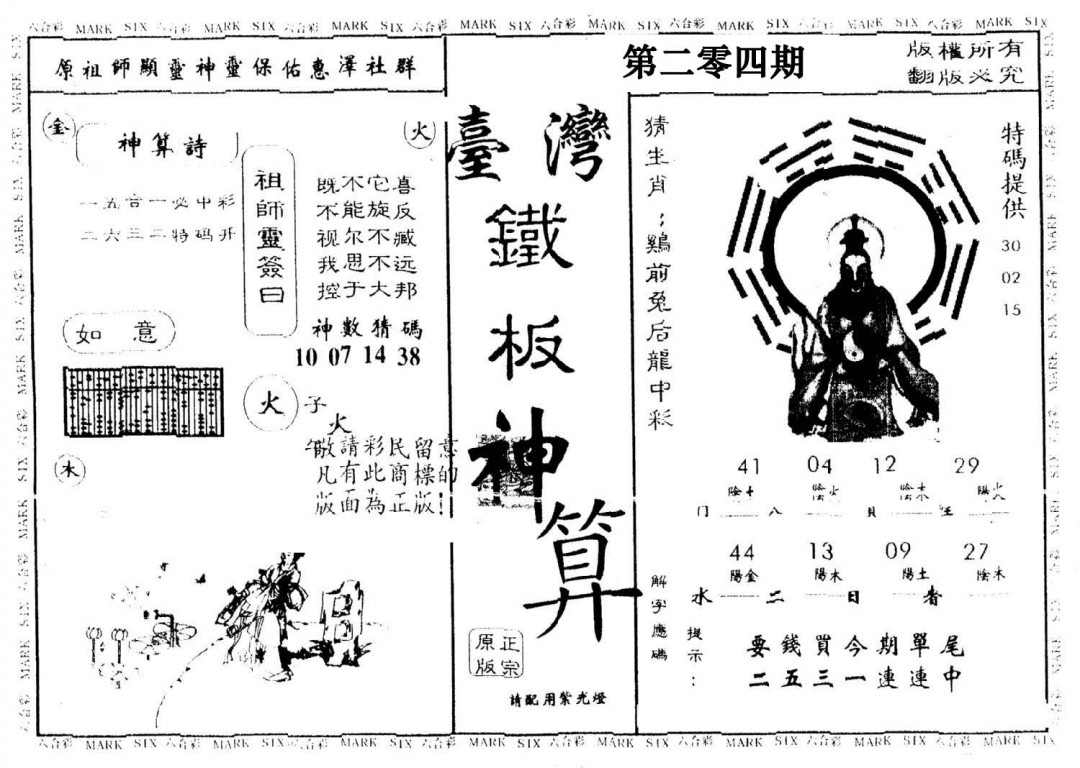 六合彩 MARK SIX 六合彩 MARK SIX 六合彩 MARK SIX 六合彩 MARK SIX 六合彩 MARK SIX 六合彩 MARK SIX 六合彩 MARK SIX 六合彩 MARK SIX
原祖師顯靈神靈保佑惠澤社群
第二零四期
版權所有
翻版必究
金
神算詩
火
一五合一必中彩
二六三二特码开
祖師靈簽曰
既不它喜
不能旋反
视尔不臧
我思不远
控于大邦
神數猜碼
10 07 14 38
如意
火
子
火
水
敬請彩民留意
凡有此商標的
版面為正版!
臺灣
鐵板神算
正宗
原版
請配用紫光燈
猜生肖;鷄前兔后龍中彩
特碼提供
30
02
15
41 04 12 29
陰土 陰火 陰木 陽火
门 八 貝 王
44 13 09 27
陽金 陽木 陽土 陰木
水 二 日 者
解字應碼
提示:
要錢買今期單尾
二五三一連連中
六合彩 MARK SIX 六合彩 MARK SIX 六合彩 MARK SIX 六合彩 MARK SIX 六合彩 MARK SIX 六合彩 MARK SIX 六合彩 MARK SIX 六合彩 MARK SIX